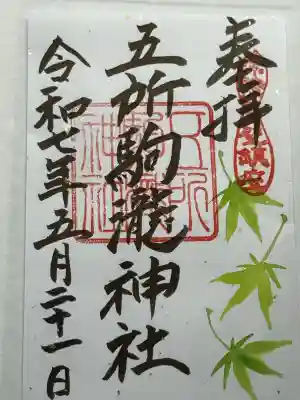 奉拝
五所駒瀧神社
令和七年五月二十一日